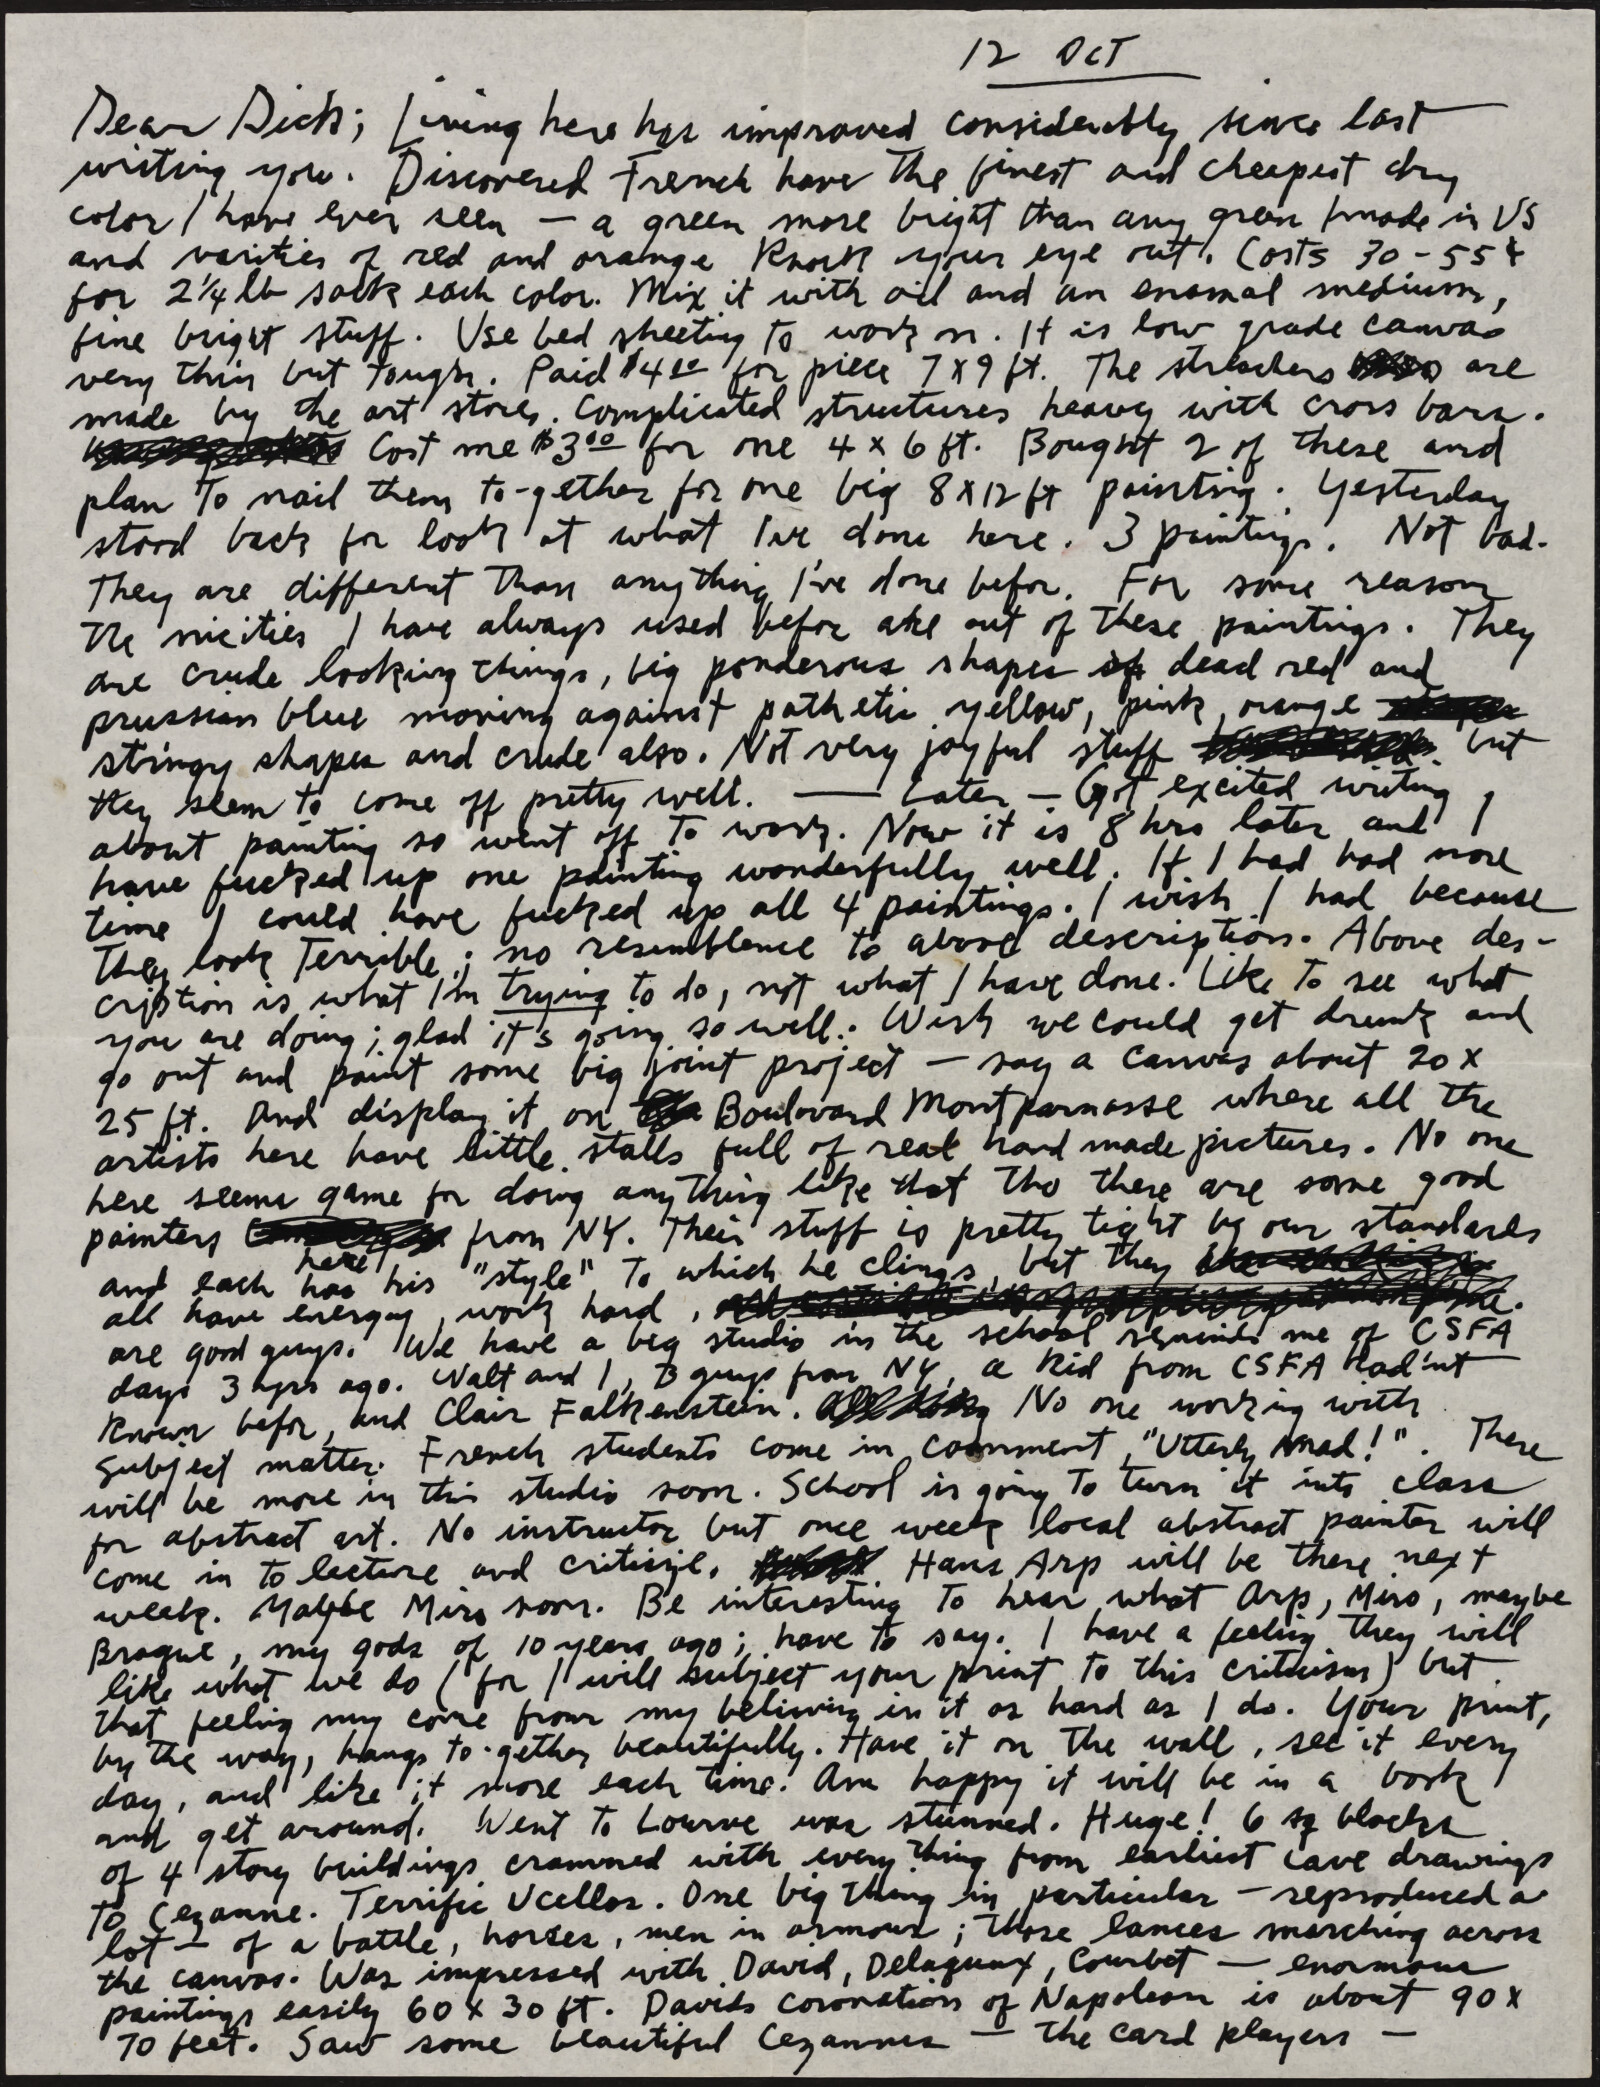 12 OCT
Dear Dick; Living here has improved considerably since last
writing you. Discovered French have the finest and cheapest dry
color I have ever seen — a green more bright than any green made in US
and varities of red and orange knock your eye out. Costs 30-55¢
for 2¼ lb sack each color. Mix it with oil and an enamal medium,
fine bright stuff. Use bed sheeting to work on. It is low grade canvas
very thin but tough. Paid $4.00 for piece 7 x 9 ft. The strechers are
made by the art stores. Complicated structures heavy with cross bars.
Cost me $3.00 for one 4 x 6 ft. Bought 2 of these and
plan to nail them to-gether for one big 8 x 12 ft painting. Yesterday
stood back for look at what I've done here. 3 paintings. Not bad.
They are different than anything I've done befor. For some reason
the nicities I have always used befor are out of these paintings. They
are crude looking things, big ponderous shapes of dead red and
prussian blue moving against pathetic yellow, pink, orange
stringy shapes and crude also. Not very joyful stuff but
they seem to come off pretty well. — Later — Got excited writing
about painting so went off to work. Now it is 8 hrs later and I
have fucked up one painting wonderfully well. If I had had more
time I could have fucked up all 4 paintings. I wish I had because
they look terrible; no resemblence to above description. Above des-
cription is what I'm trying to do, not what I have done. Like to see what
you are doing; glad it's going so well. Wish we could get drunk and
go out and paint some big joint project — say a canvas about 20 x
25 ft. And display it on Boulovard Montparnasse where all the
artists here have little stalls full of real hand made pictures. No one
here seems game for doing anything like that tho there are some good
painters from NY. Their stuff is pretty tight by our standards
and each here has his "style" to which he clings, but they
all have energy, work hard,
are good guys. We have a big studio in the school reminds me of CSFA
days 3 yrs ago. Walt and I, 3 guys from NY, a kid from CSFA Had'nt
known befor, and Clair Falkenstein. No one working with
subject matter. French students come in comment, "Utterly Mad!". There
will be more in this studio soon. School is going to turn it into class
for abstract art. No instructor but once week local abstract painter will
come in to lecture and critisize. Hans Arp will be there next
week. Maybe Miro soon. Be interesting to hear what Arp, Miro, maybe
Braque, my gods of 10 years ago; have to say. I have a feeling they will
like what we do (for I will subject your print to this critisism) but
that feeling my come from my believing in it as hard as I do. Your print,
by the way, hangs to-gether beautifully. Have it on the wall, see it every
day, and like it more each time. Am happy it will be in a book
and get around. Went to Lourve was stunned. Huge! 6 sq blocks
of 4 story buildings crammed with every thing from earliest cave drawings
to Cezanne. Terrific Ucellos. One big thing in particular — reproduced a
lot — of a battle, horses, men in armour; those lances marching across
the canvas. Was impressed with David, Delaquux, Courbet — enormous
paintings easily 60 x 30 ft. Davids coronation of Napolean is about 90 x
70 feet. Saw some beautiful Cezannes — the card players —